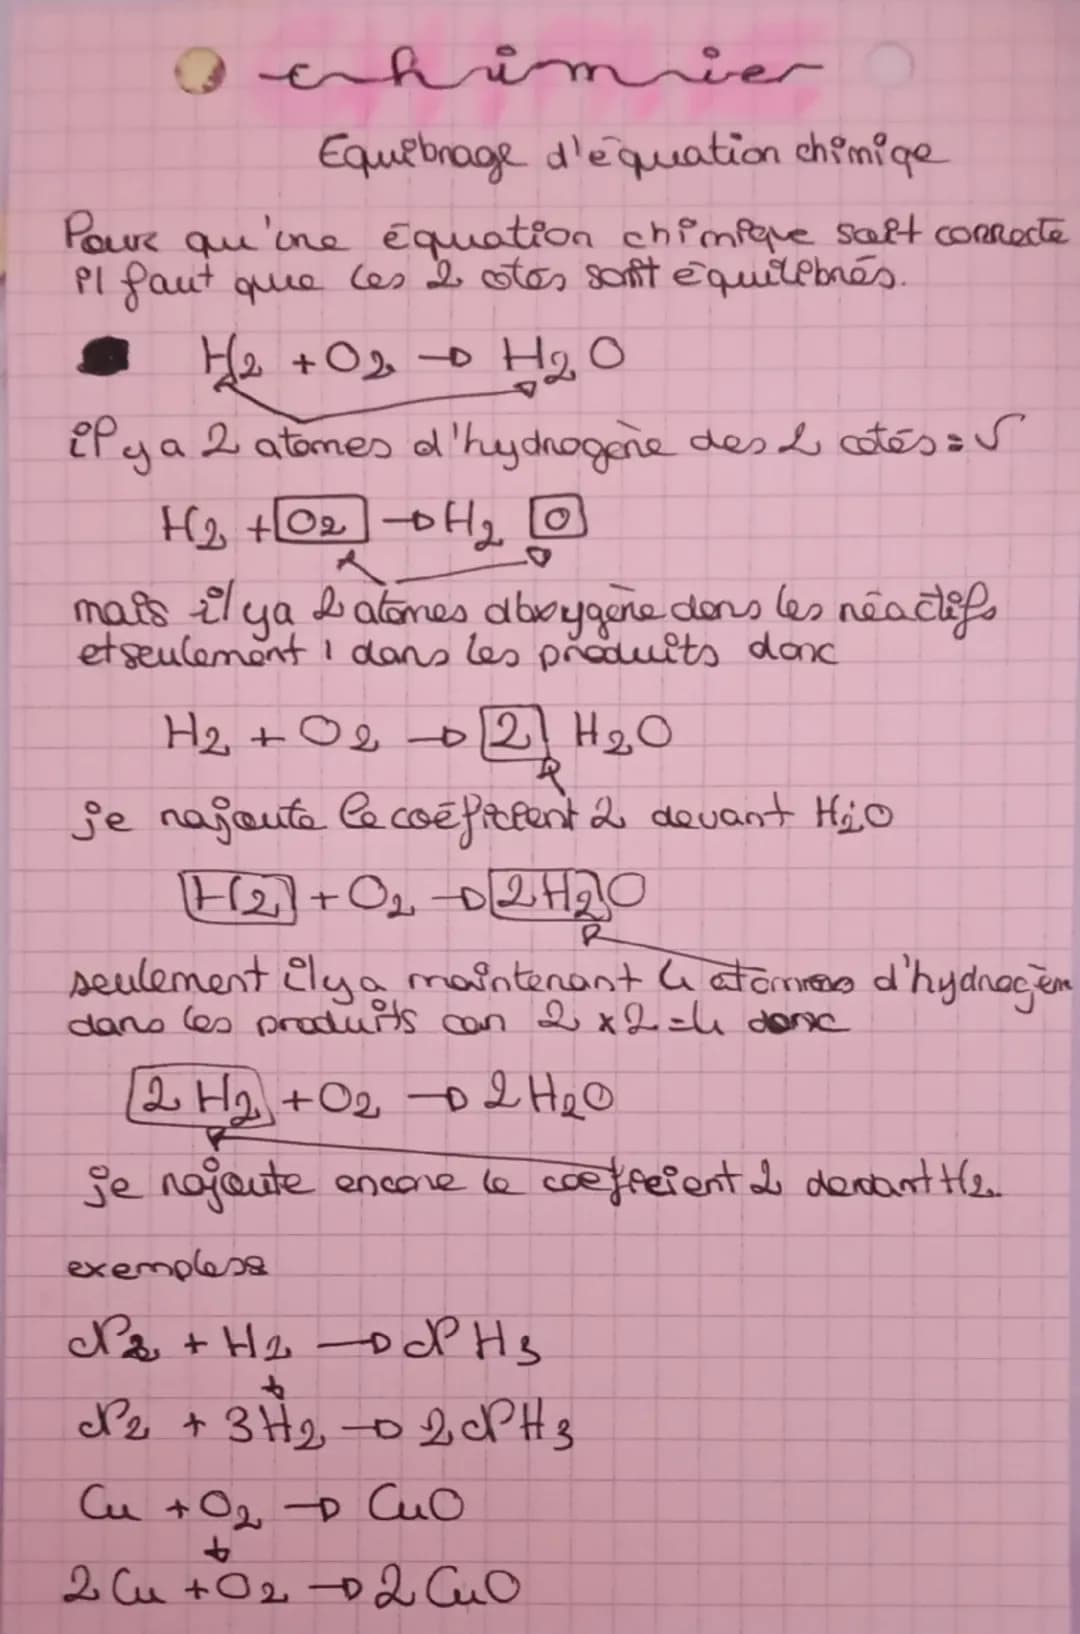 chimie
Equilbrage d'équation chimiqe
Pour qu'une équation chimique soit correcte
il faut que les 2 cotés soit équilibrés.
H₂ + O₂ → H₂O
il y a 2 atomes d'hydrogène des 2 cotés = √
H₂ + O₂ → H₂ O
mais il y a 2 atomes d'oxygène dans les réactifs
et seulement 1 dans les produits donc
H₂ + O₂ → 2 H₂O
je rajoute le coéficient 2 devant H₂O
H₂ + O₂ → 2H₂O
seulement il y a maintenant 4 atomes d'hydrogèn
dans les produits car 2 x 2 = 4 donc
2 H₂ + O₂ → 2 H₂O
je rajoute encore le coefficient 2 devant H₂.
exemples
N₂ + H₂ → NH₃
N₂ + 3H₂ → 2NH₃
Cu + O₂ → CuO
2 Cu + O₂ → 2 CuO